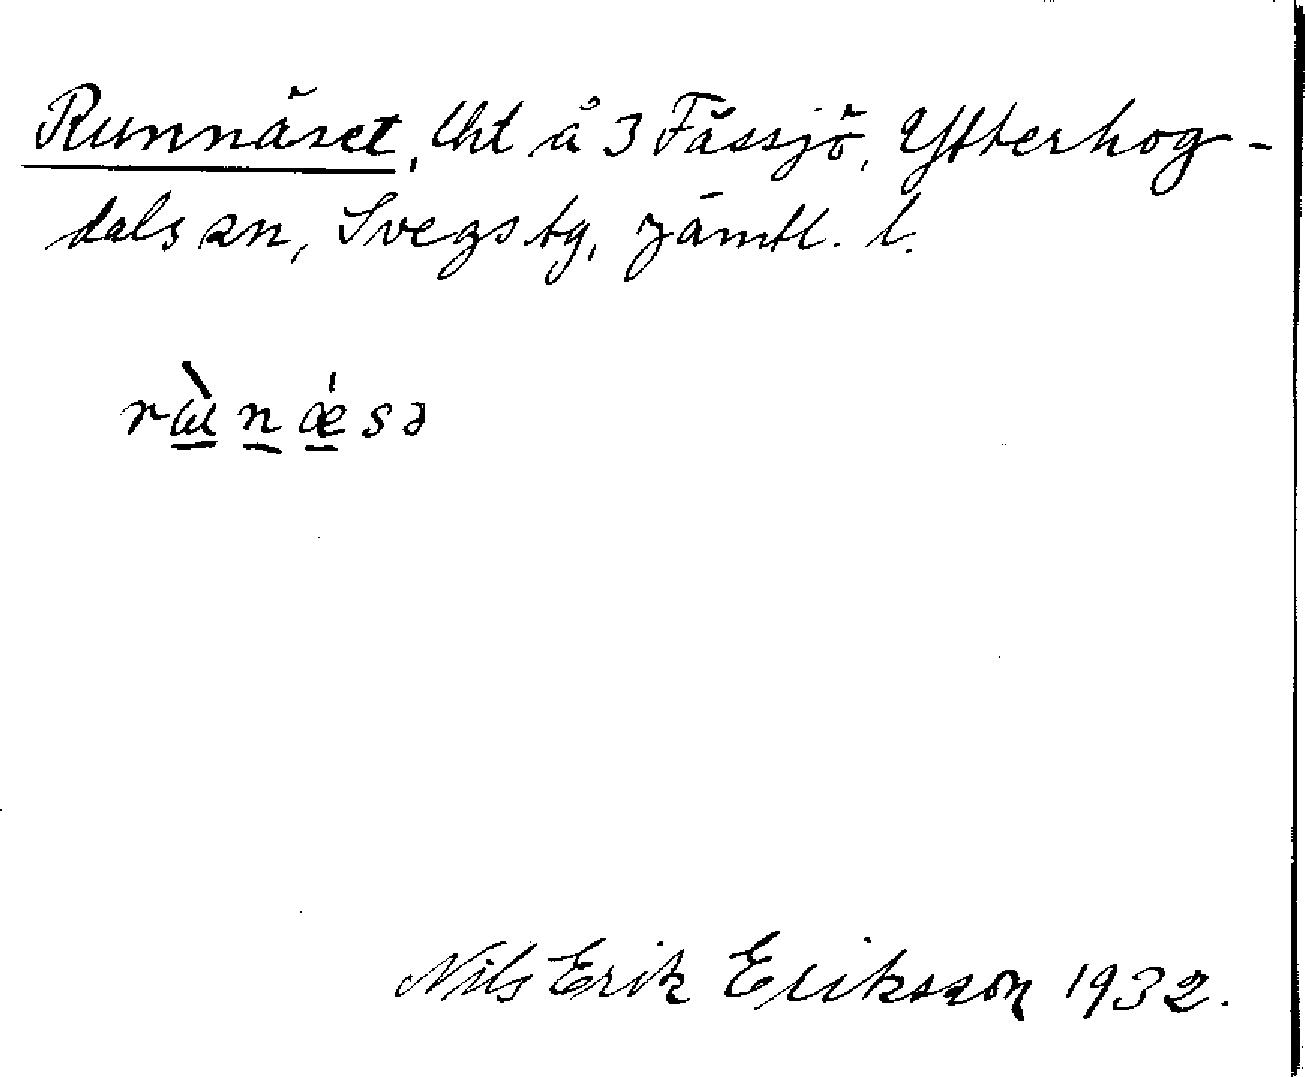 Runnäset, lht å 3 Fåssjö, Ytterhog-
dals sn, Svegs tg, Jämtl. l.
rɯ̀næ´sə
Nils Erik Eriksson 1932.